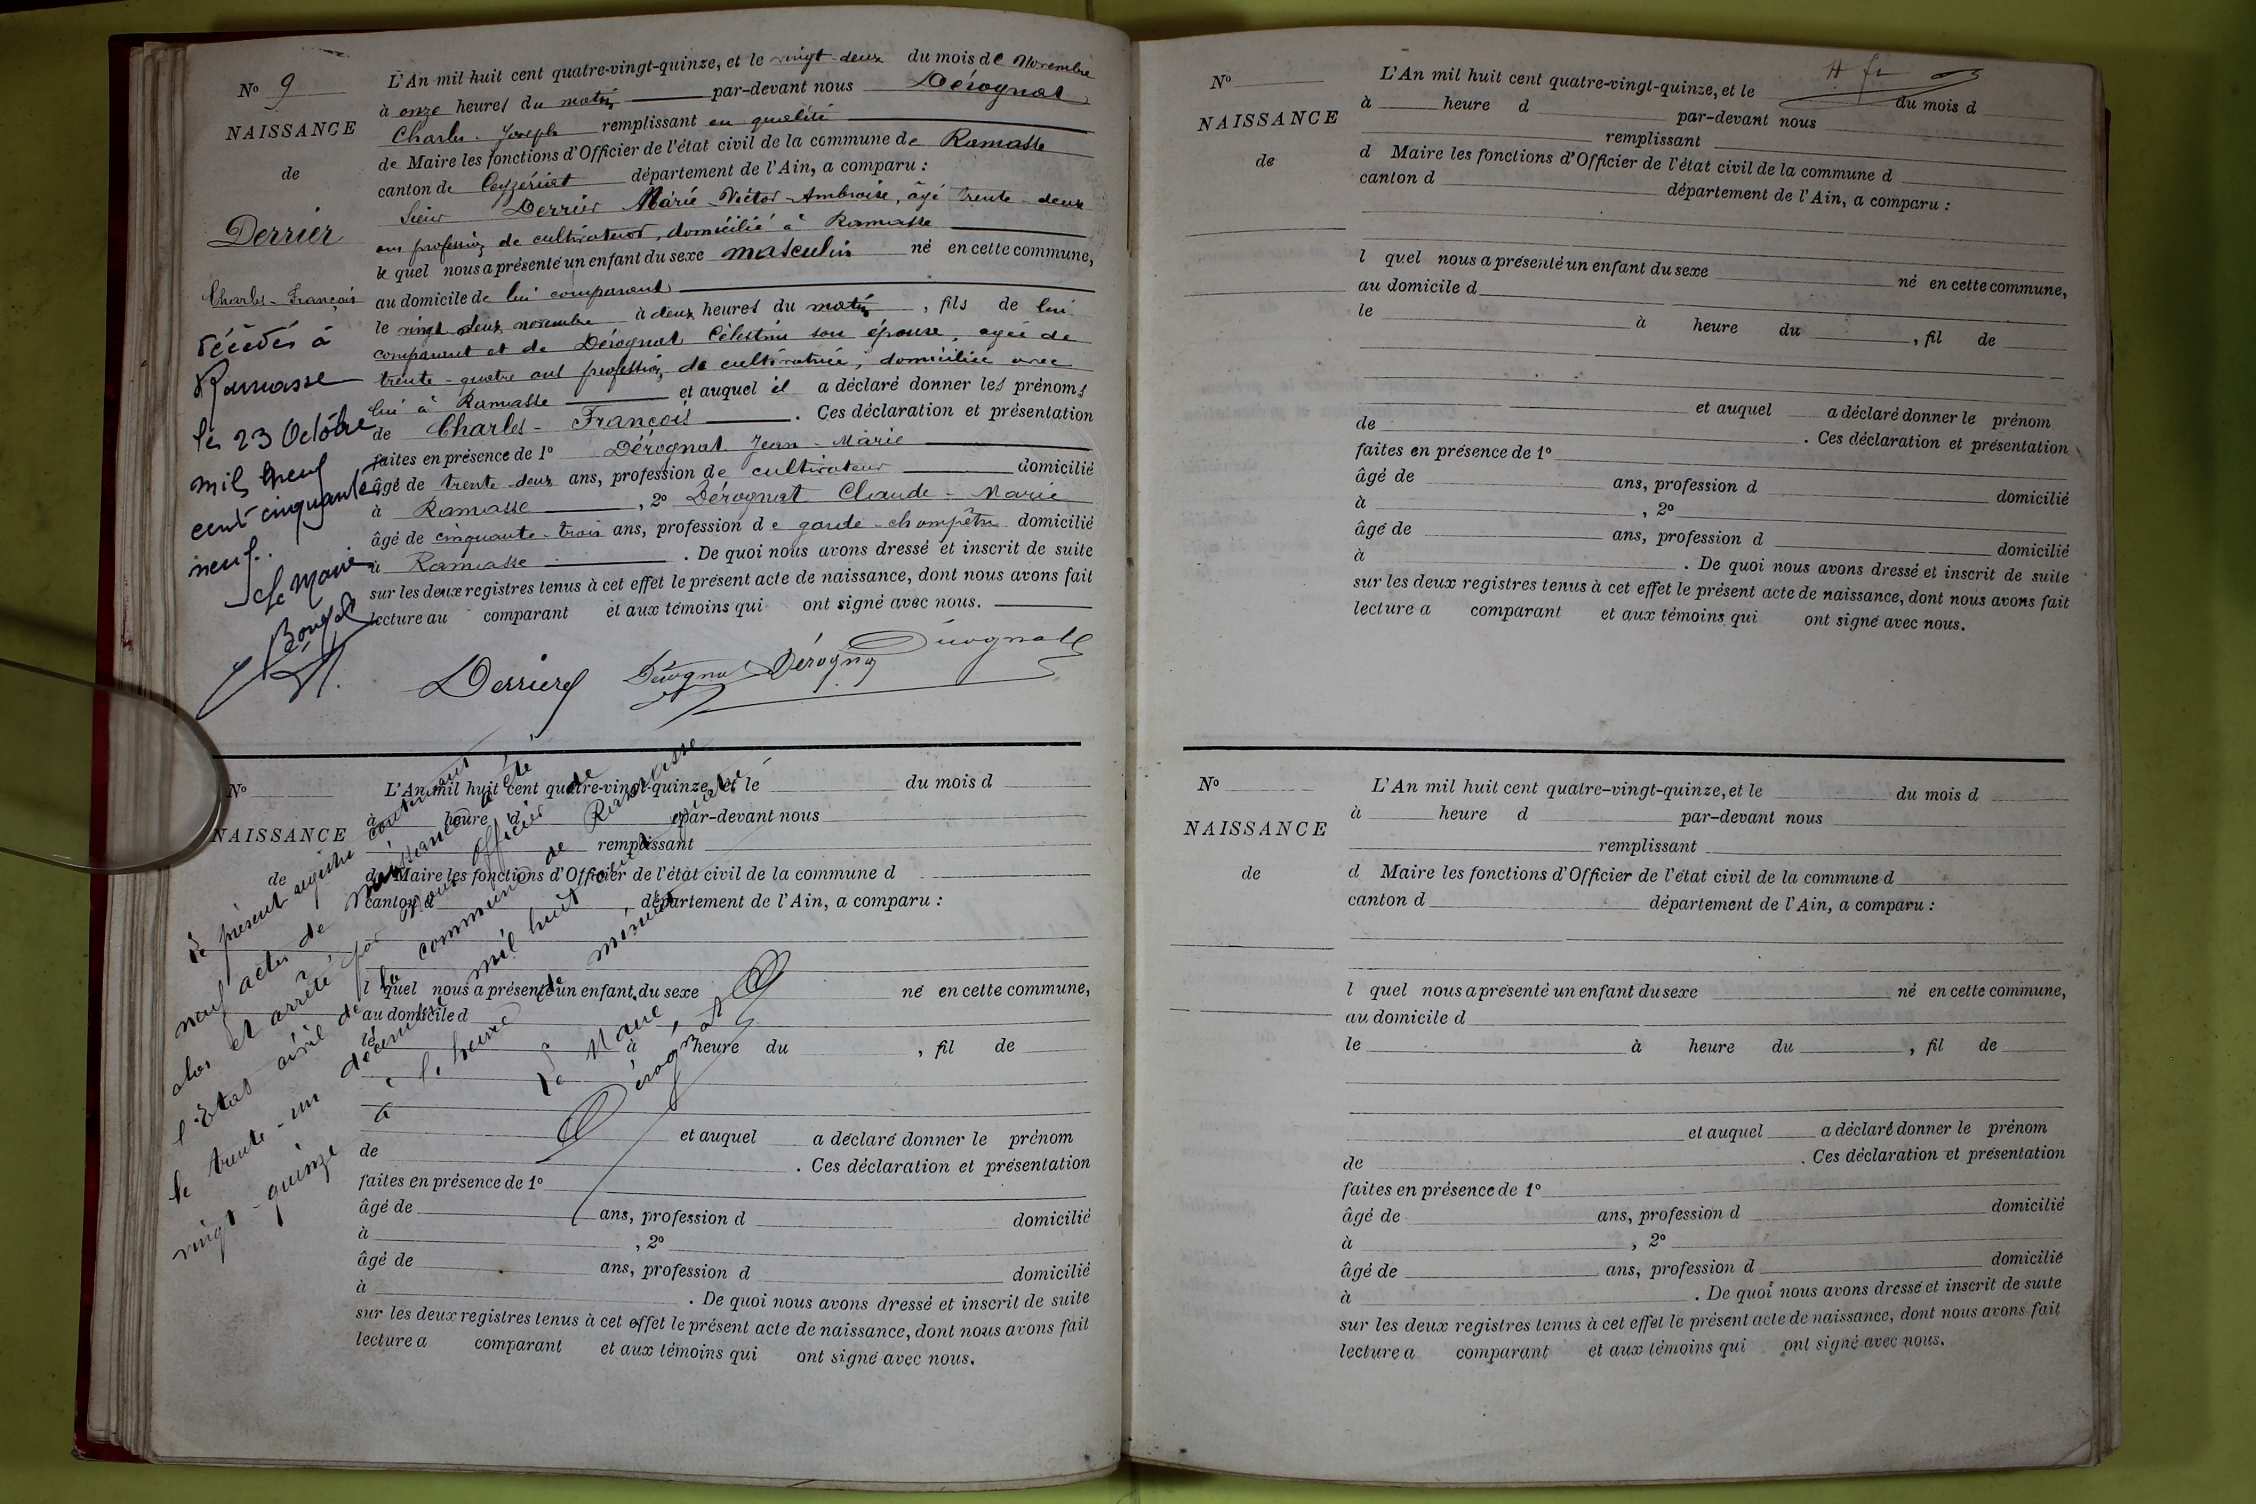 No 9
NAISSANCE
de
Derrier
Charles-François
décédé à
Ramasse
le 23 Octobre
mil neuf
cent cinquante
neuf.
Le Maire
L'An mil huit cent quatre-vingt-quinze, et le vingt-deux du mois de Novembre
à onze heures du matin par-devant nous Dérognat
Charles-Joseph remplissant en qualité
de Maire les fonctions d'Officier de l'état civil de la commune de Ramasse
canton de Ceyzériat département de l'Ain, a comparu :
Sieur Derrier Marie-Victor-Ambroise, âgé trente-deux
ans profession de cultivateur, domicilié à Ramasse
le quel nous a présenté un enfant du sexe masculin né en cette commune,
au domicile de lui comparant
le vingt deux novembre à deux heures du matin, fils de lui
comparant et de Dérognat Célestine son épouse, agée de
trente-quatre ans profession de cultivatrice, domiciliée avec
lui à Ramasse et auquel il a déclaré donner les prénoms
de Charles-François. Ces déclaration et présentation
faites en présence de 1o Dérognat Jean-Marie
âgé de trente deux ans, profession de cultivateur domicilié
à Ramasse, 2o Dérognat Claude-Marie
âgé de cinquante-trois ans, profession de garde-champêtre domicilié
à Ramasse. De quoi nous avons dressé et inscrit de suite
sur les deux registres tenus à cet effet le présent acte de naissance, dont nous avons fait
lecture au comparant et aux témoins qui ont signé avec nous.
Derrier Dérognat Dérognat Dérognat
No
NAISSANCE
de
L'An mil huit cent quatre-vingt-quinze, et le du mois d
à heure d par-devant nous
remplissant
d Maire les fonctions d'Officier de l'état civil de la commune d
canton d département de l'Ain, a comparu :
l quel nous a présenté un enfant du sexe né en cette commune,
au domicile d
le à heure du , fil de
et auquel a déclaré donner le prénom
de . Ces déclaration et présentation
faites en présence de 1o
âgé de ans, profession d domicilié
à , 2o
âgé de ans, profession d domicilié
à . De quoi nous avons dressé et inscrit de suite
sur les deux registres tenus à cet effet le présent acte de naissance, dont nous avons fait
lecture a comparant et aux témoins qui ont signé avec nous.
Le présent registre contenant
neuf actes de naissance a été
clos et arrêté par nous officier de
l'Etat civil de la commune de Ramasse
le trente-un décembre mil huit cent quatre
vingt-quinze à heure de minuit
Le Maire,
Dérognat
No
NAISSANCE
de
L'An mil huit cent quatre-vingt-quinze, et le du mois d
à heure d par-devant nous
remplissant
d Maire les fonctions d'Officier de l'état civil de la commune d
canton d département de l'Ain, a comparu :
l quel nous a présenté un enfant du sexe né en cette commune,
au domicile d
le à heure du , fil de
et auquel a déclaré donner le prénom
de . Ces déclaration et présentation
faites en présence de 1o
âgé de ans, profession d domicilié
à , 2o
âgé de ans, profession d domicilié
à . De quoi nous avons dressé et inscrit de suite
sur les deux registres tenus à cet effet le présent acte de naissance, dont nous avons fait
lecture a comparant et aux témoins qui ont signé avec nous.
No
NAISSANCE
de
L'An mil huit cent quatre-vingt-quinze, et le du mois d
à heure d par-devant nous
remplissant
d Maire les fonctions d'Officier de l'état civil de la commune d
canton d département de l'Ain, a comparu :
l quel nous a présenté un enfant du sexe né en cette commune,
au domicile d
le à heure du , fil de
et auquel a déclaré donner le prénom
de . Ces déclaration et présentation
faites en présence de 1o
âgé de ans, profession d domicilié
à , 2o
âgé de ans, profession d domicilié
à . De quoi nous avons dressé et inscrit de suite
sur les deux registres tenus à cet effet le présent acte de naissance, dont nous avons fait
lecture a comparant et aux témoins qui ont signé avec nous.